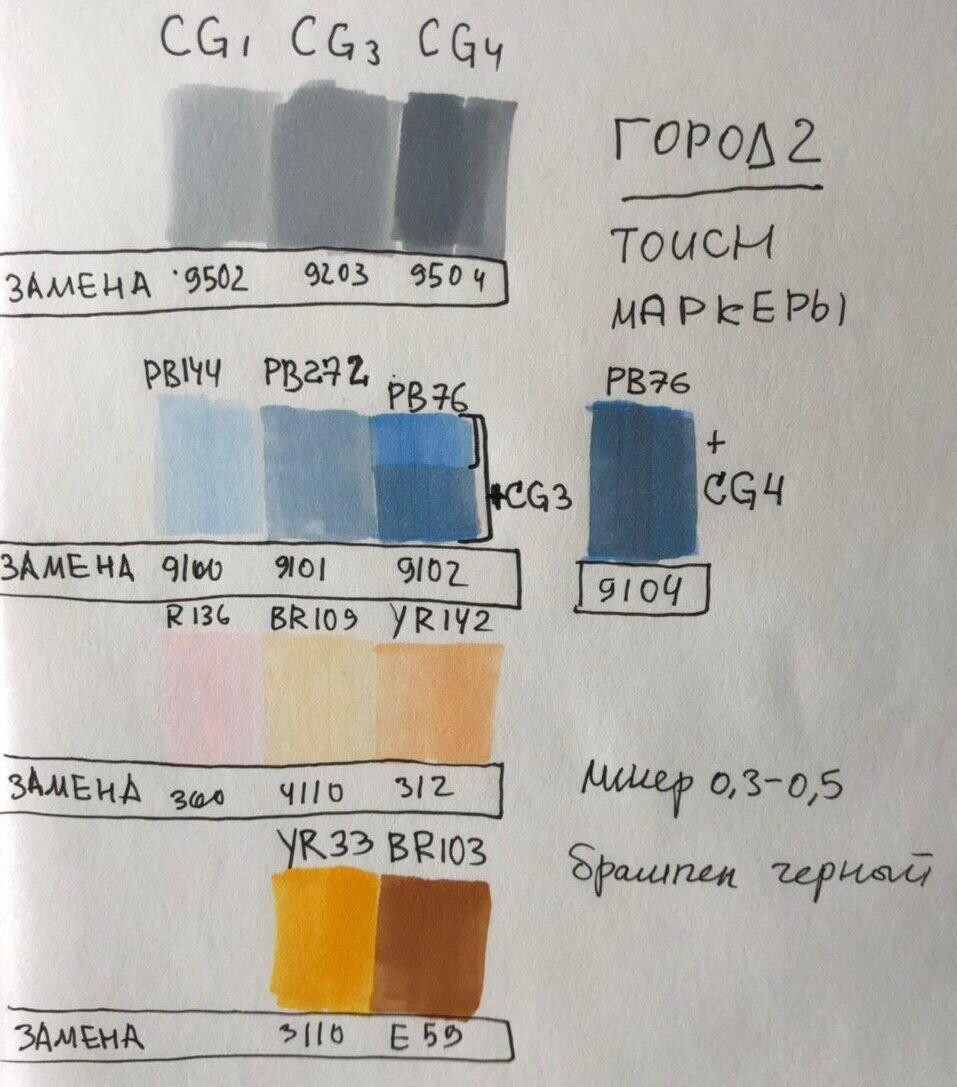 CG1 CG3 CG4
ГОРОД 2
TOUCH
МАРКЕРЫ
ЗАМЕНА 9502 9203 9504
PB144 PB272 PB76
+CG3
PB76
+
CG4
ЗАМЕНА 9100 9101 9102
9104
R136 BR109 YR142
ЗАМЕНА 360 4110 312
линер 0,3-0,5
брашпен черный
YR33 BR103
ЗАМЕНА 3110 E59